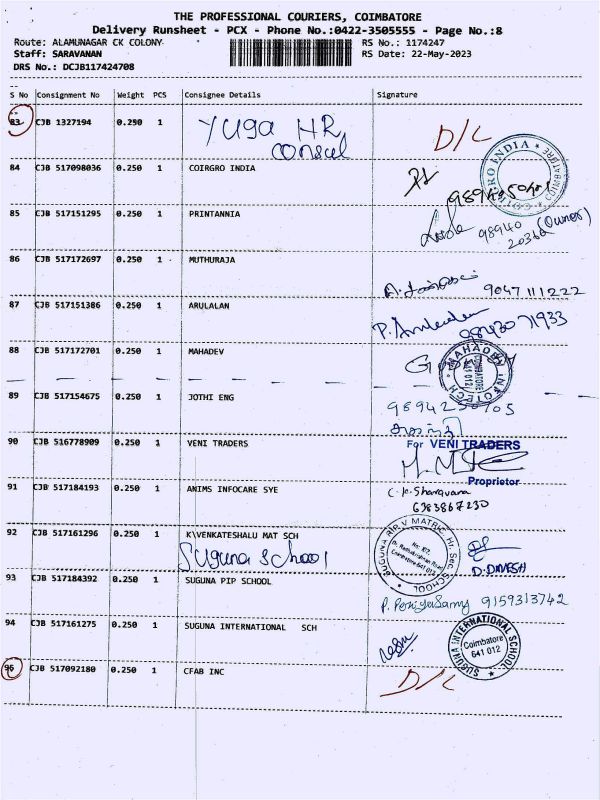 THE PROFESSIONAL COURIERS, COIMBATORE
Delivery Runsheet - PCX - Phone No.:0422-3505555 - Page No.:8
Route: ALAMUNAGAR CK COLONY RS No.: 1174247
Staff: SARAVANAN RS Date: 22-May-2023
DRS No.: DCJB117424708
S No Consignment No Weight PCS Consignee Details Signature
83 CJB 1327194 0.250 1 Yuga HR D/L
Consul
84 CJB 517098036 0.250 1 COIRGRO INDIA
85 CJB 517151295 0.250 1 PRINTANNIA 98940 (Owner)
86 CJB 517172697 0.250 1 MUTHURAJA 9047111222
87 CJB 517151386 0.250 1 ARULALAN P. Arulalan
88 CJB 517172701 0.250 1 MAHADEV MAHADEV INFOTECH
89 CJB 517154675 0.250 1 JOTHI ENG
90 CJB 516778909 0.250 1 VENI TRADERS For VENI TRADERS
Proprietor
91 CJB 517184193 0.250 1 ANIMS INFOCARE SYE
6383867230
92 CJB 517161296 0.250 1 K\VENKATESHALU MAT SCH
Suguna School
93 CJB 517184392 0.250 1 SUGUNA PIP SCHOOL 9159313742
94 CJB 517161275 0.250 1 SUGUNA INTERNATIONAL SCH SUGUNA INTERNATIONAL SCHOOL
Coimbatore
641 012
95 CJB 517092180 0.250 1 CFAB INC D/L